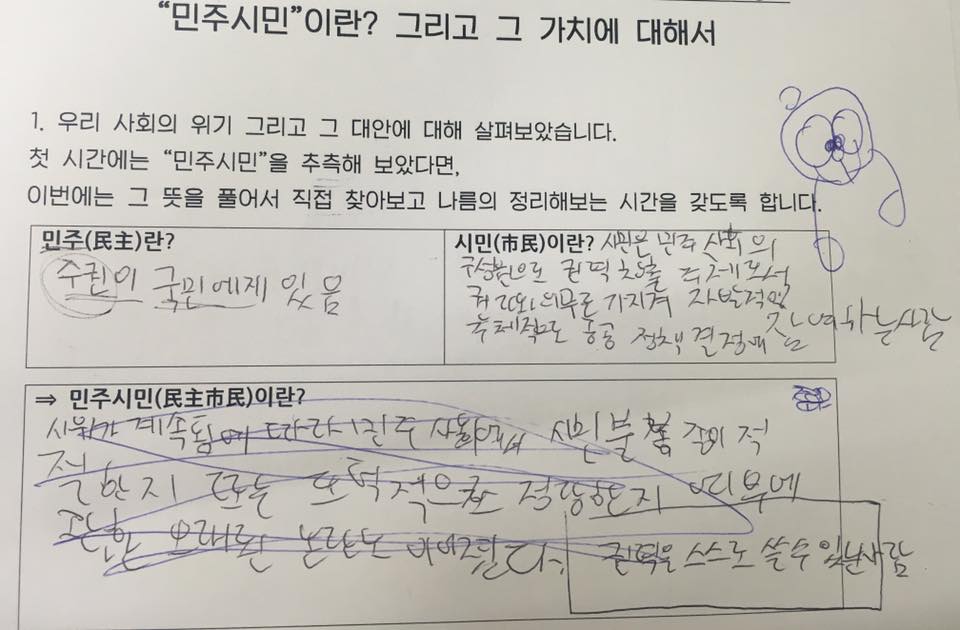 “민주시민”이란? 그리고 그 가치에 대해서
1. 우리 사회의 위기 그리고 그 대안에 대해 살펴보았습니다.
첫 시간에는 “민주시민”을 추측해 보았다면,
이번에는 그 뜻을 풀어서 직접 찾아보고 나름의 정리해보는 시간을 갖도록 합니다.
민주(民主)란?
주권이 국민에게 있음
시민(市民)이란? 시민은 민주 사회의
구성원으로 권력
권리와 의무를 가지며 자발적이고
주체적으로 공공 정책 결정에 참여하는 사람
⇒ 민주시민(民主市民)이란?
시위가 계속됨에 따라 민주 사회에서 시민 불 적
절한지 또는 도덕적으로 정당한지 여부에
관한 오래된 논란도
권력을 스스로 쓸 수 있는 사람